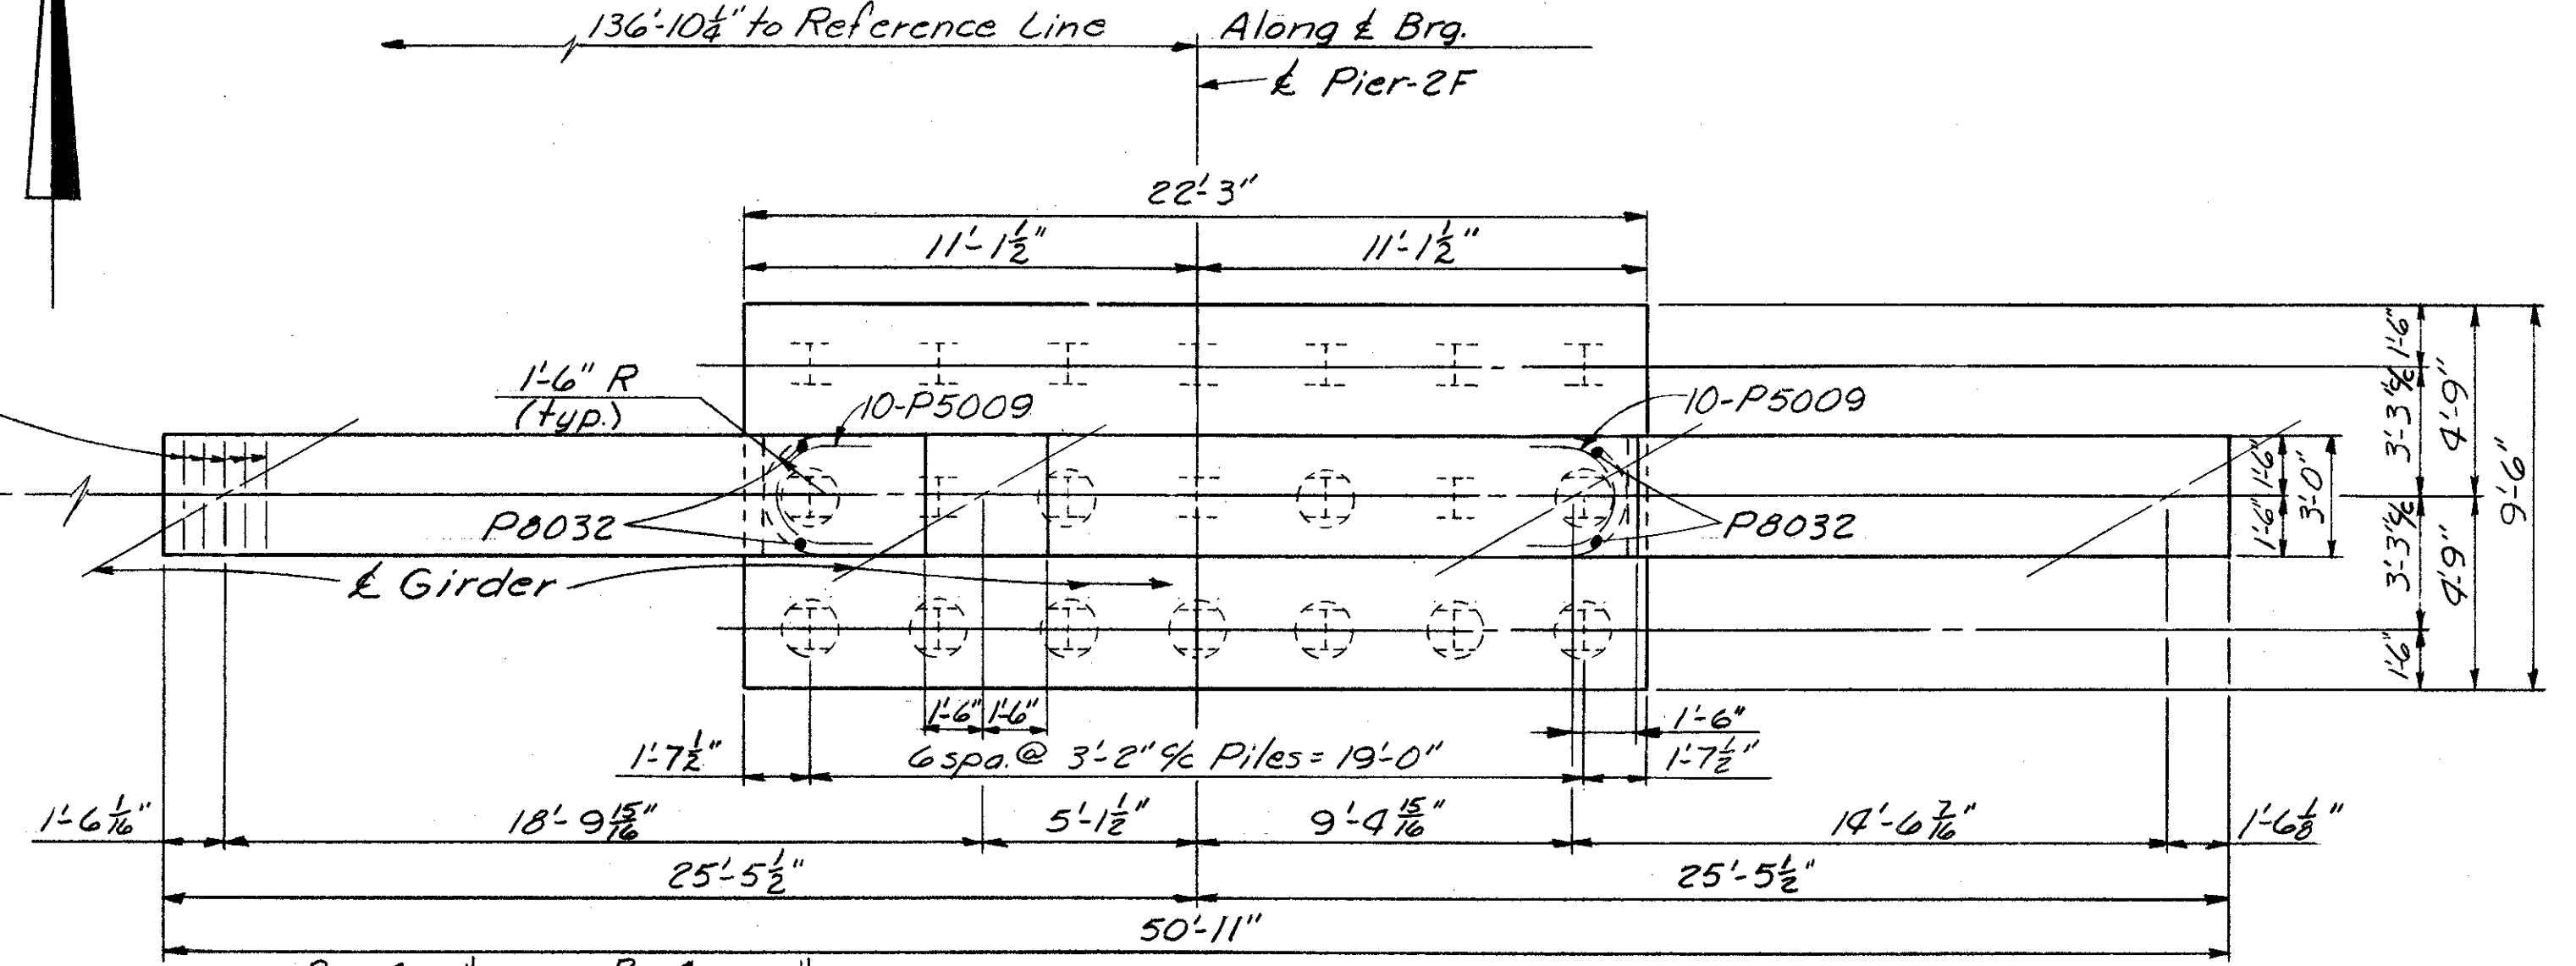 136'-10¼" to Reference Line Along ℄ Brg.
℄ Pier-2F
22'-3"
11'-1½" 11'-1½"
1'-6" R
(typ.)
10-P5009
10-P5009
P8032
P8032
℄ Girder
1'-6"
3'-3" c/c
3'-3" c/c
1'-6"
4'-9"
4'-9"
9'-6"
1'-6"
1'-6"
3'-0"
1'-6" 1'-6"
1'-6"
1'-7½"
6 spa. @ 3'-2" c/c Piles = 19'-0"
1'-7½"
1'-6 1/16" 18'-9 15/16" 5'-1½" 9'-4 15/16" 14'-6 7/16" 1'-6⅛"
25'-5½" 25'-5½"
50'-11"